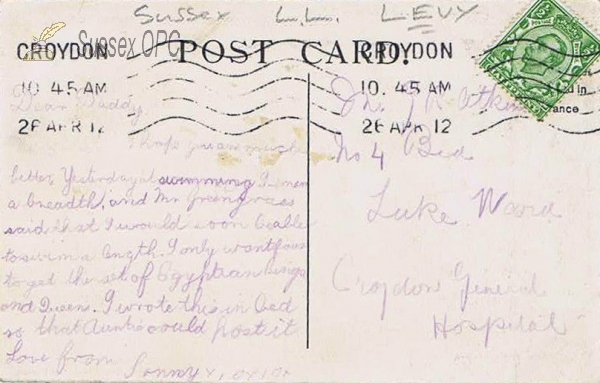 Sussex L.L. LEVY
Sussex OPC
POST CARD.
CROYDON
10. 45 AM
26 APR 12
CROYDON
10. 45 AM
26 APR 12
Dear Daddy
I hope you are much
better. Yesterday at swimming I swam
a breadth, and Mr Greengrass
said that I would soon be able
to swim a length. I only want four
to get the set of Egyptian Kings
and Queens. I wrote this in bed
so that Auntie could post it
Love from
Sonny
Mr.
No 4 Bed
Luke Ward
Croydon General
Hospital